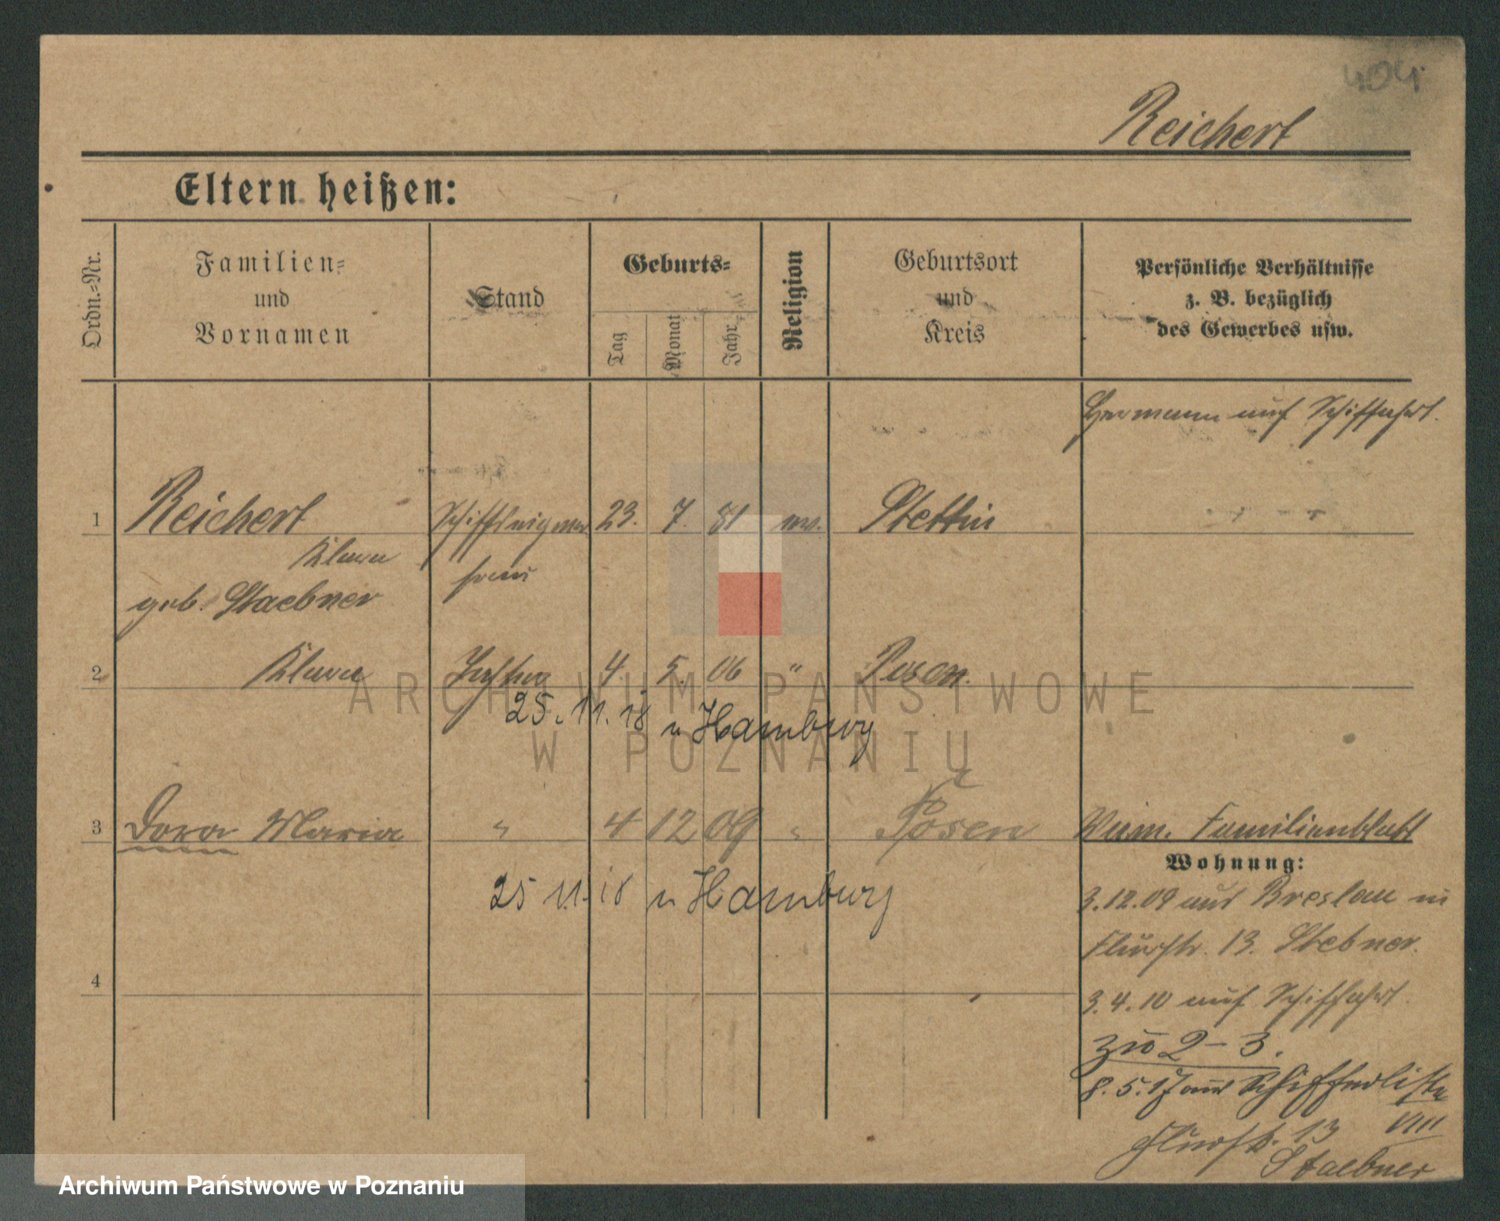 404
Reichert
Eltern heißen:
Ordn.-Nr.
Familien-
und
Vornamen
Stand
Geburts-
Tag
Monat
Jahr
Religion
Geburtsort
und
Kreis
Persönliche Verhältnisse
z. B. bezüglich
des Gewerbes usw.
Hermann auf Schiffahrt.
1 Reichert Schiffseigner 23. 7. 81 ev. Stettin
Klara frau
geb. Staebner
2 Klara Tochter 4 5. 06 " Posen.
25.11.18 n Hamburg
3 Dora Maria " 4 12 09 " Posen
Familienblatt
Wohnung:
25 11.18 n Hamburg
3.12.09 aus Breslau in
Flurstr. 13. Stebner.
4
3.4.10 auf Schiffahrt.
zu 2-3.
8.5.17 aus Schifferliste
Flurstr. 13 VIII
Staebner
ARCHIWUM PAŃSTWOWE
W POZNANIU
Archiwum Państwowe w Poznaniu